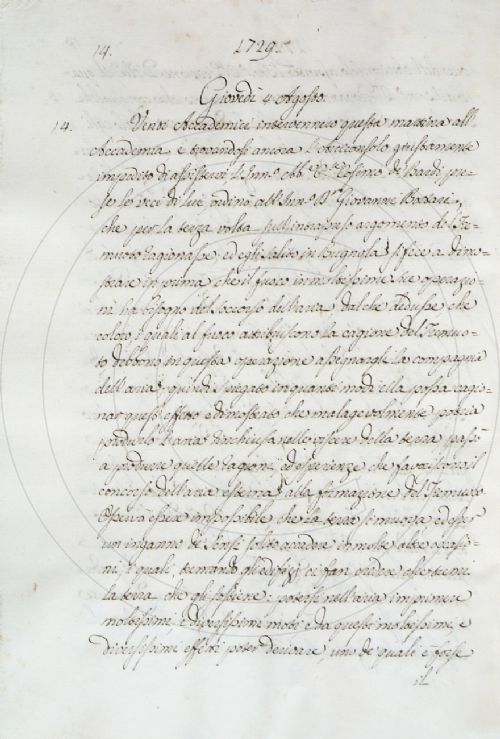 14. 1729.
Giovedì 4 Agosto.
14. Venti Accademici intervennero questa mattina all'
Accademia e trovandosi ancora l'Arciconsolo giustamente
impedito di assistervi l'Inn.o Abb. Cosimo de Bardi pre-
se le veci di lui, ordinò all'Inn.o D.r Giovanni Bastiani,
che per la terza volta sull'intrapreso argomento del Tre-
muoto ragionasse, ed egli salito in Bugnola si fece a dimo-
strare in prima che il fuoco in moltissime sue operazio-
ni ha bisogno del soccorso dell'aria dal che dedusse che
coloro i quali al fuoco attribuiscono la cagione del Tremuo-
to debbono in questa operazione assegnargli la compagnia
dell'aria: quindi spiegato in quanti modi ella possa cagio-
nar questo effetto e dimostrato che malagevolmente potria
produrlo l'aria rinchiusa nelle viscere della terra passò
a produrre quelle ragioni, ed esperienze che favoriscono il
concorso dell'aria esterna alla formazione del Tremuoto
essere impossibile che la terra si muova ed esser
un inganno de sensi solito accadere in molte altre occasio-
ni, i quali, tremando gli edifizj ci fan credere che tremi
la terra che gli sostiene: potersi nell'aria imprimere
moltissimi, e diversissimi moti e da questi moltissimi, e
diversissimi effetti poter derivare, uno de quali è forse
il